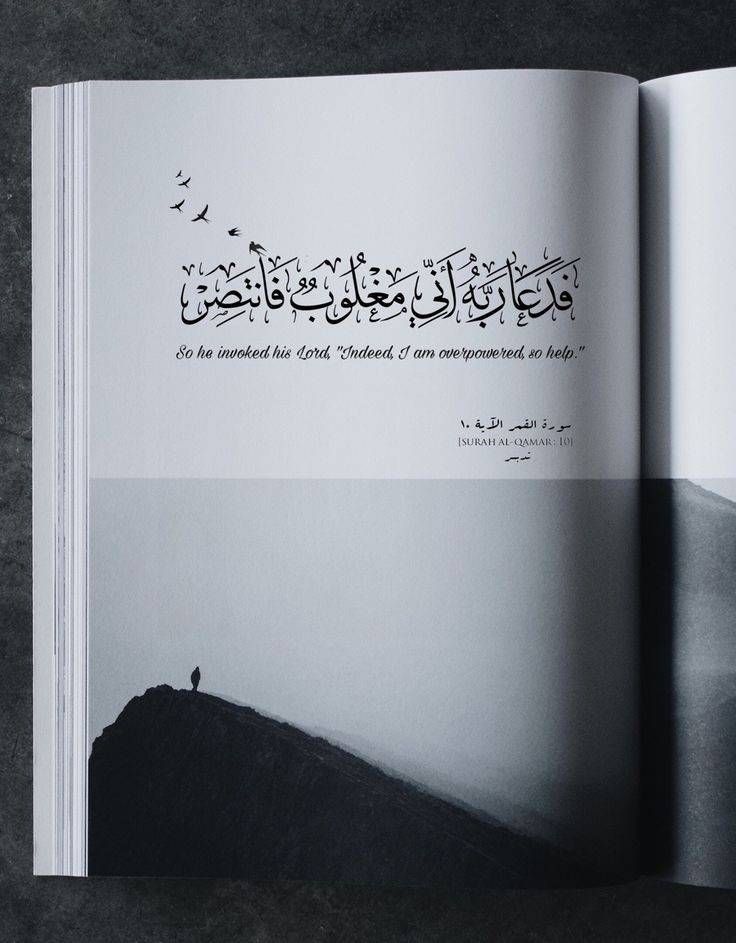 فَدَعَا رَبَّهُ أَنِّي مَغْلُوبٌ فَانتَصِرْ
So he invoked his Lord, "Indeed, I am overpowered, so help."
سورة القمر الآية ١٠
[SURAH AL-QAMAR: 10]
تدبر